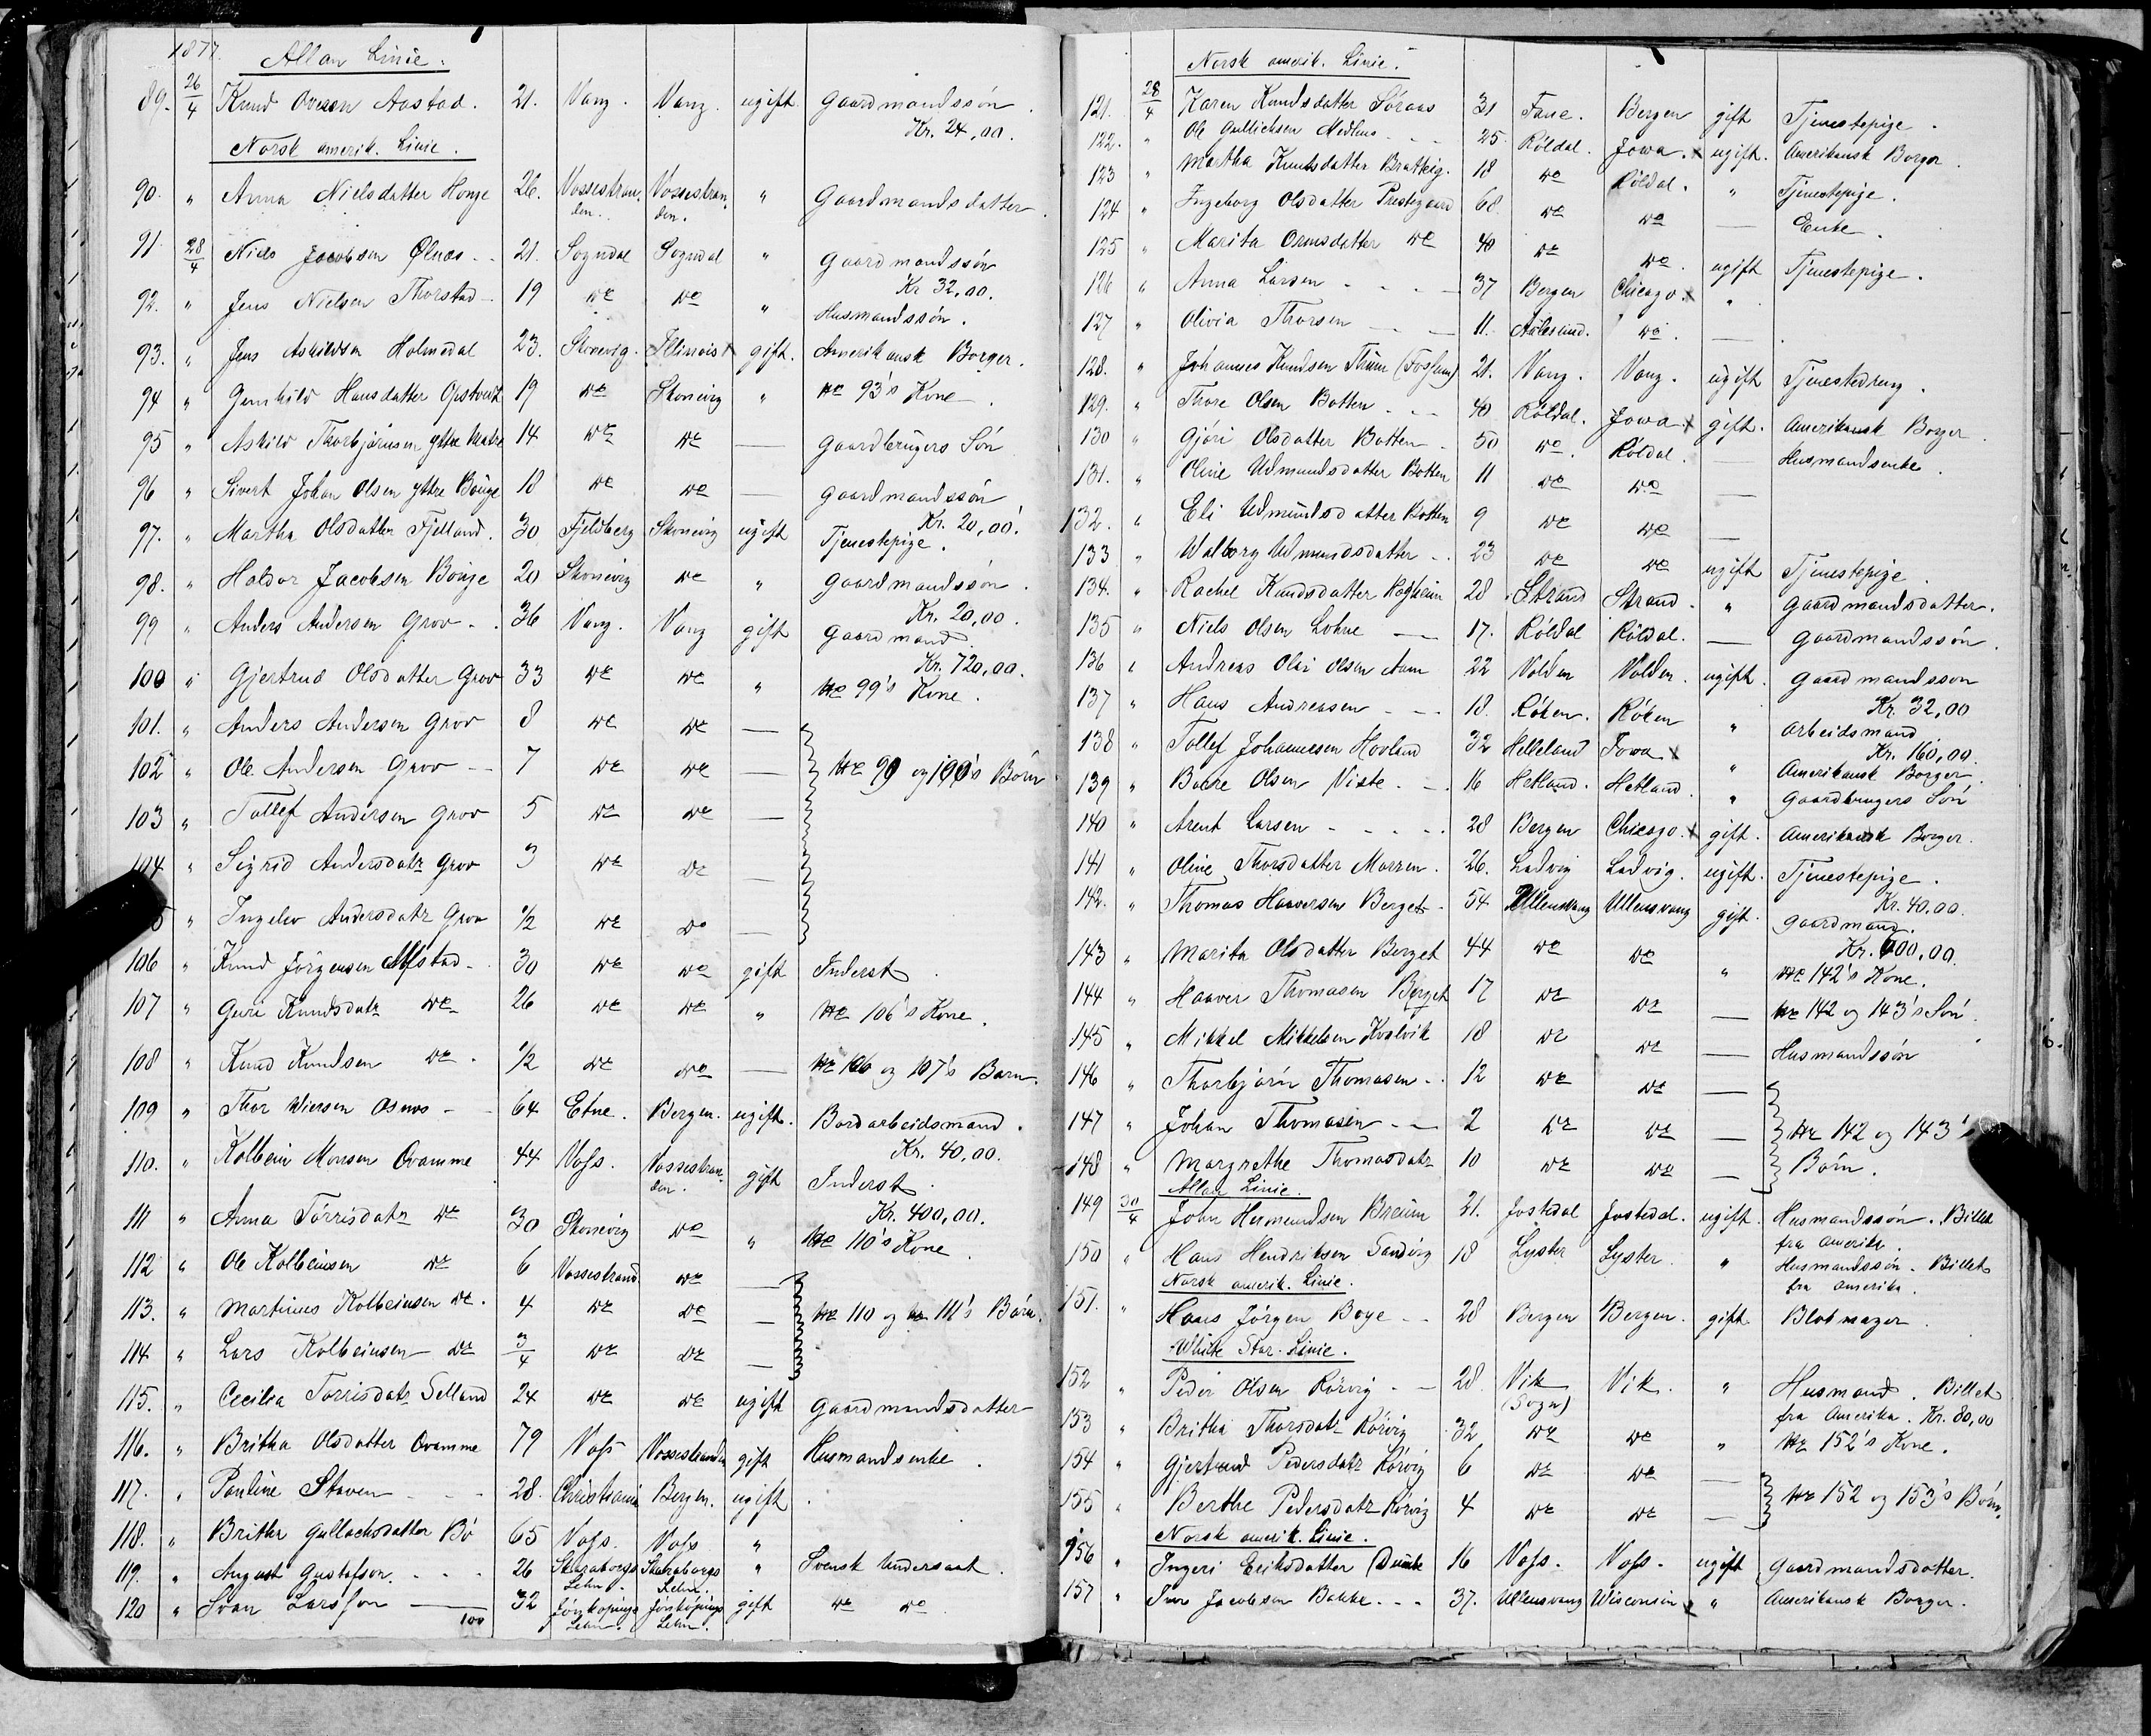 1877.
Allan Linie.
89. 26/4 Knud Oversen Aastad. 21. Vang. Vang. ugift. Gaardmandssøn
Kr. 24,00.
Norsk amerik. Linie.
90. " Anna Nielsdatter Honge 26. Vossestran- Vossestran- " Gaardmandsdatter.
den. den.
91 28/4 Niels Jacobsen Ølnæs - - 21. Sogndal Sogndal " Gaardmandssøn
Kr 32,00.
92. " Jens Nielsen Thorstad - 19 do do " Husmandssøn.
93. " Jens Askildsen Holmedal 23. Skonevig. Illinois x gift. Amerikansk Borger.
94 " Gunhild Hansdatter Opstveit 19 do Skonevig " No 93's Kone.
95 " Askild Thorbjørnsen Ytre Matre 14 do do — Gaardbrugers Søn
96 " Sivert Johan Olsen Yttre Bouge 18 do do — Gaardmandssøn
Kr. 20,00.
97. " Martha Olsdatter Fjelland. 30 Fjeldberg Skonevig ugift Tjenestepige.
98. " Haldor Jacobsen Bouge 20 Skonevig do " Gaardmandssøn.
Kr. 20,00.
99 " Anders Andersen Grov - . 36 Vang. Vang gift Gaardmand
Kr. 720,00.
100 " Gjertrud Olsdatter Grov 33 do do " No 99's Kone.
101. " Anders Andersen Grov 8 do do —
102 " Ole Andersen Grov - - 7 do do — No 99 og 100's Børn
103 " Tollef Andersen Grov 5 do do —
104 " Sigrid Andersdatr Grov 3 do do —
5 " Ingelev Andersdatr Grov 1/2 do do —
106 " Knud Jørgensen Alfstad - 30 do do gift Inderst.
107 " Guri Knudsdatr do 26 do do " No 106's Kone.
108 " Knud Knudsen do . 1/2 do do — No 106 og 107's Barn.
109 " Thor Wiersen Osnes - 64 Etne. Bergen. ugift. Bordarbeidsmand.
Kr. 40,00.
110. " Kolbein Monsen Qvamme 44 Voss. Vossestran- gift Inderst.
den.
Kr. 400,00.
111 " Anna Tørrisdatr do 30 Skonevig do " No 110's Kone.
112 " Ole Kolbeinsen do 6 Vossestrand do —
113. " Martinus Kolbeinsen do . 4 do do — No 110 og 111's Børn.
114. " Lars Kolbeinsen do 3/4 do do —
115. " Cecilia Torrisdatr Selland 24 do do ugift Gaardmandsdatter
116. " Britha Olsdatter Qvamme 79 Voss Vossestranden gift Husmandsenke.
117. " Pauline Staven - - - 28. Christiania Bergen. ugift.
118. " Britha Gullachsdatter Bø 65 Voss. Voss "
119. " August Gustafson . - - - 26 Skaraborgs Skaraborgs " Svensk Undersaat.
Lehn. Lehn.
120 " Svan Larsson — 32 Jönköpings Jönköpings gift do do
100 Lehn. Lehn.
Norsk amerik. Linie.
121. 28/4 Karen Knudsdatter Søraas 31 Fane. Bergen gift Tjenestepige.
122. " Ole Gullichsen Medhus - - 25. Røldal. Jowa. x ugift. Amerikansk Borger.
123 " Martha Knutsdatter Brattkig. 18 do Røldal. " Tjenestepige.
124 " Ingeborg Olsdatter Prestegaard 68 do do — Enke.
125 " Marita Ormsdatter do 40 do do. ugift Tjenestepige.
126 " Anna Larsen - - - - 37 Bergen Chicago. x "
127 " Olivia Thorsen - - 11. Aalesund. do —
128. " Johannes Knudsen Thune (Fossum) 21. Vang. Vang. ugift Tjenestedreng.
129. " Thore Olsen Botten. - - 40 Røldal. Jowa x gift. Amerikansk Borger.
130 " Gjøri Olsdatter Botten. 50 do. Røldal. — Husmandsenke.
131. " Oline Udmundsdatter Botten 11 do do —
132. " Eli Udmundsdatter Botten 9 do do —
133 " Walborg Udmundsdatter - . 23 do do ugift Tjenestepige
134. " Rachel Knudsdatter 28 Strand Strand. " Gaardmandsdatter.
135 " Niels Olsen Lohne — 17. Røldal Røldal. — Gaardmandssøn.
136 " Andreas Olai Olsen Aam 22 Volden Volden. ugift. Gaardmandsson
Kr. 32,00
137 " Hans Andreasen - - - 18. Røken. Røken " Arbeidsmand
Kr. 160,00.
138 " Tollef Johannesen Hovland 32 Helleland Jowa x " Amerikansk Borger.
139 " Baare Olsen Viste. - - 16 Hetland. Hetland. " Gaardbrugers Søn
140 " Arent Larsen - - - - 28 Bergen Chicago. x gift. Amerikansk Borger.
141 " Oline Thorsdatter Marren. 26. Ladvig Ladvig. ugift. Tjenestepige.
Kr. 40,00.
142. " Thomas Haaversen Berget. 54 Ullensvang Ullensvang gift. Gaardmand.
Kr. 600,00.
143 " Marita Olsdatter Berget 44 do do " No 142's Kone.
144 " Haaver Thomasen Berget 17 do do — No 142 og 143's Søn
145 " Mikkel Mikkelsen Kvalvik 18 do do — Husmandssøn
146 " Thorbjørn Thomasen - . 12 do do —
147 " Johan Thomasen - - 2 do do — No 142 og 143's
148 " Margrethe Thomasdatr 10 do do — Børn.
Allan Linie.
149 30/4 John Hermundsen Breum 21. Jostedal Jostedal. ugift. Husmandssøn. Billet
fra Amerika.
150 " Hans Hendriksen Sandvig 18 Lyster Lyster. " Husmandssøn. Billet
fra Amerika.
Norsk amerik. Linie.
151. " Hans Jørgen Boye - - 28 Bergen Bergen. gift. Blokmager.
White Star-Linie.
152 " Peder Olsen Rørvig - - 28. Vik Vik. " Husmand. Billet
(Sogn) fra Amerika. Kr. 80,00
153 " Britha Thorsdatr Rørvig 32 do do " No 152's Kone.
154 " Gjertrud Pedersdatr Rørvig 6 do do —
155 " Berthe Pedersdatr Rørvig 4 do do — No 152 og 153's Børn.
Norsk amerik. Linie.
156 " Ingeri Eriksdatter 16 Voss. Voss. ugift Gaardmandsdatter.
157 " Iver Jacobsen Bakke. - - 37. Ullensvang Wisconsin x " Amerikansk Borger.